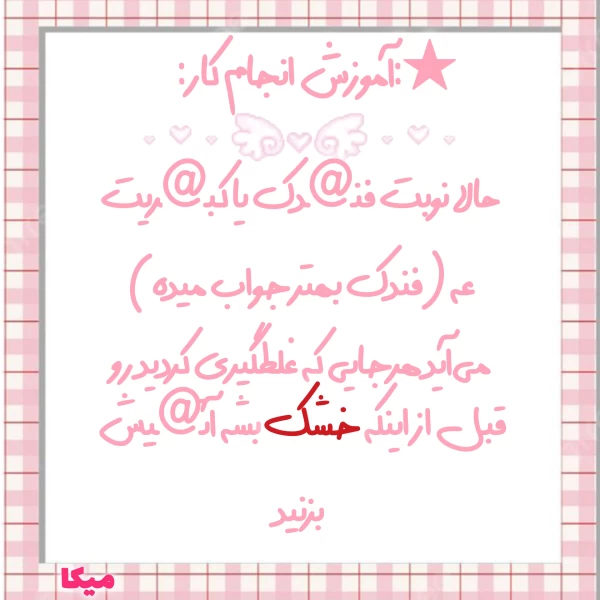 ★:آموزش انجام کار:
حالا نوبت فند@دک یا کبـ@ـریت
عه ( فندک بهتر جواب میده )
می‌آید هر جایی که غلطگیری کردید رو
قبل از اینکه خشک بشه آتـ@ـیش
بزنید
میکا